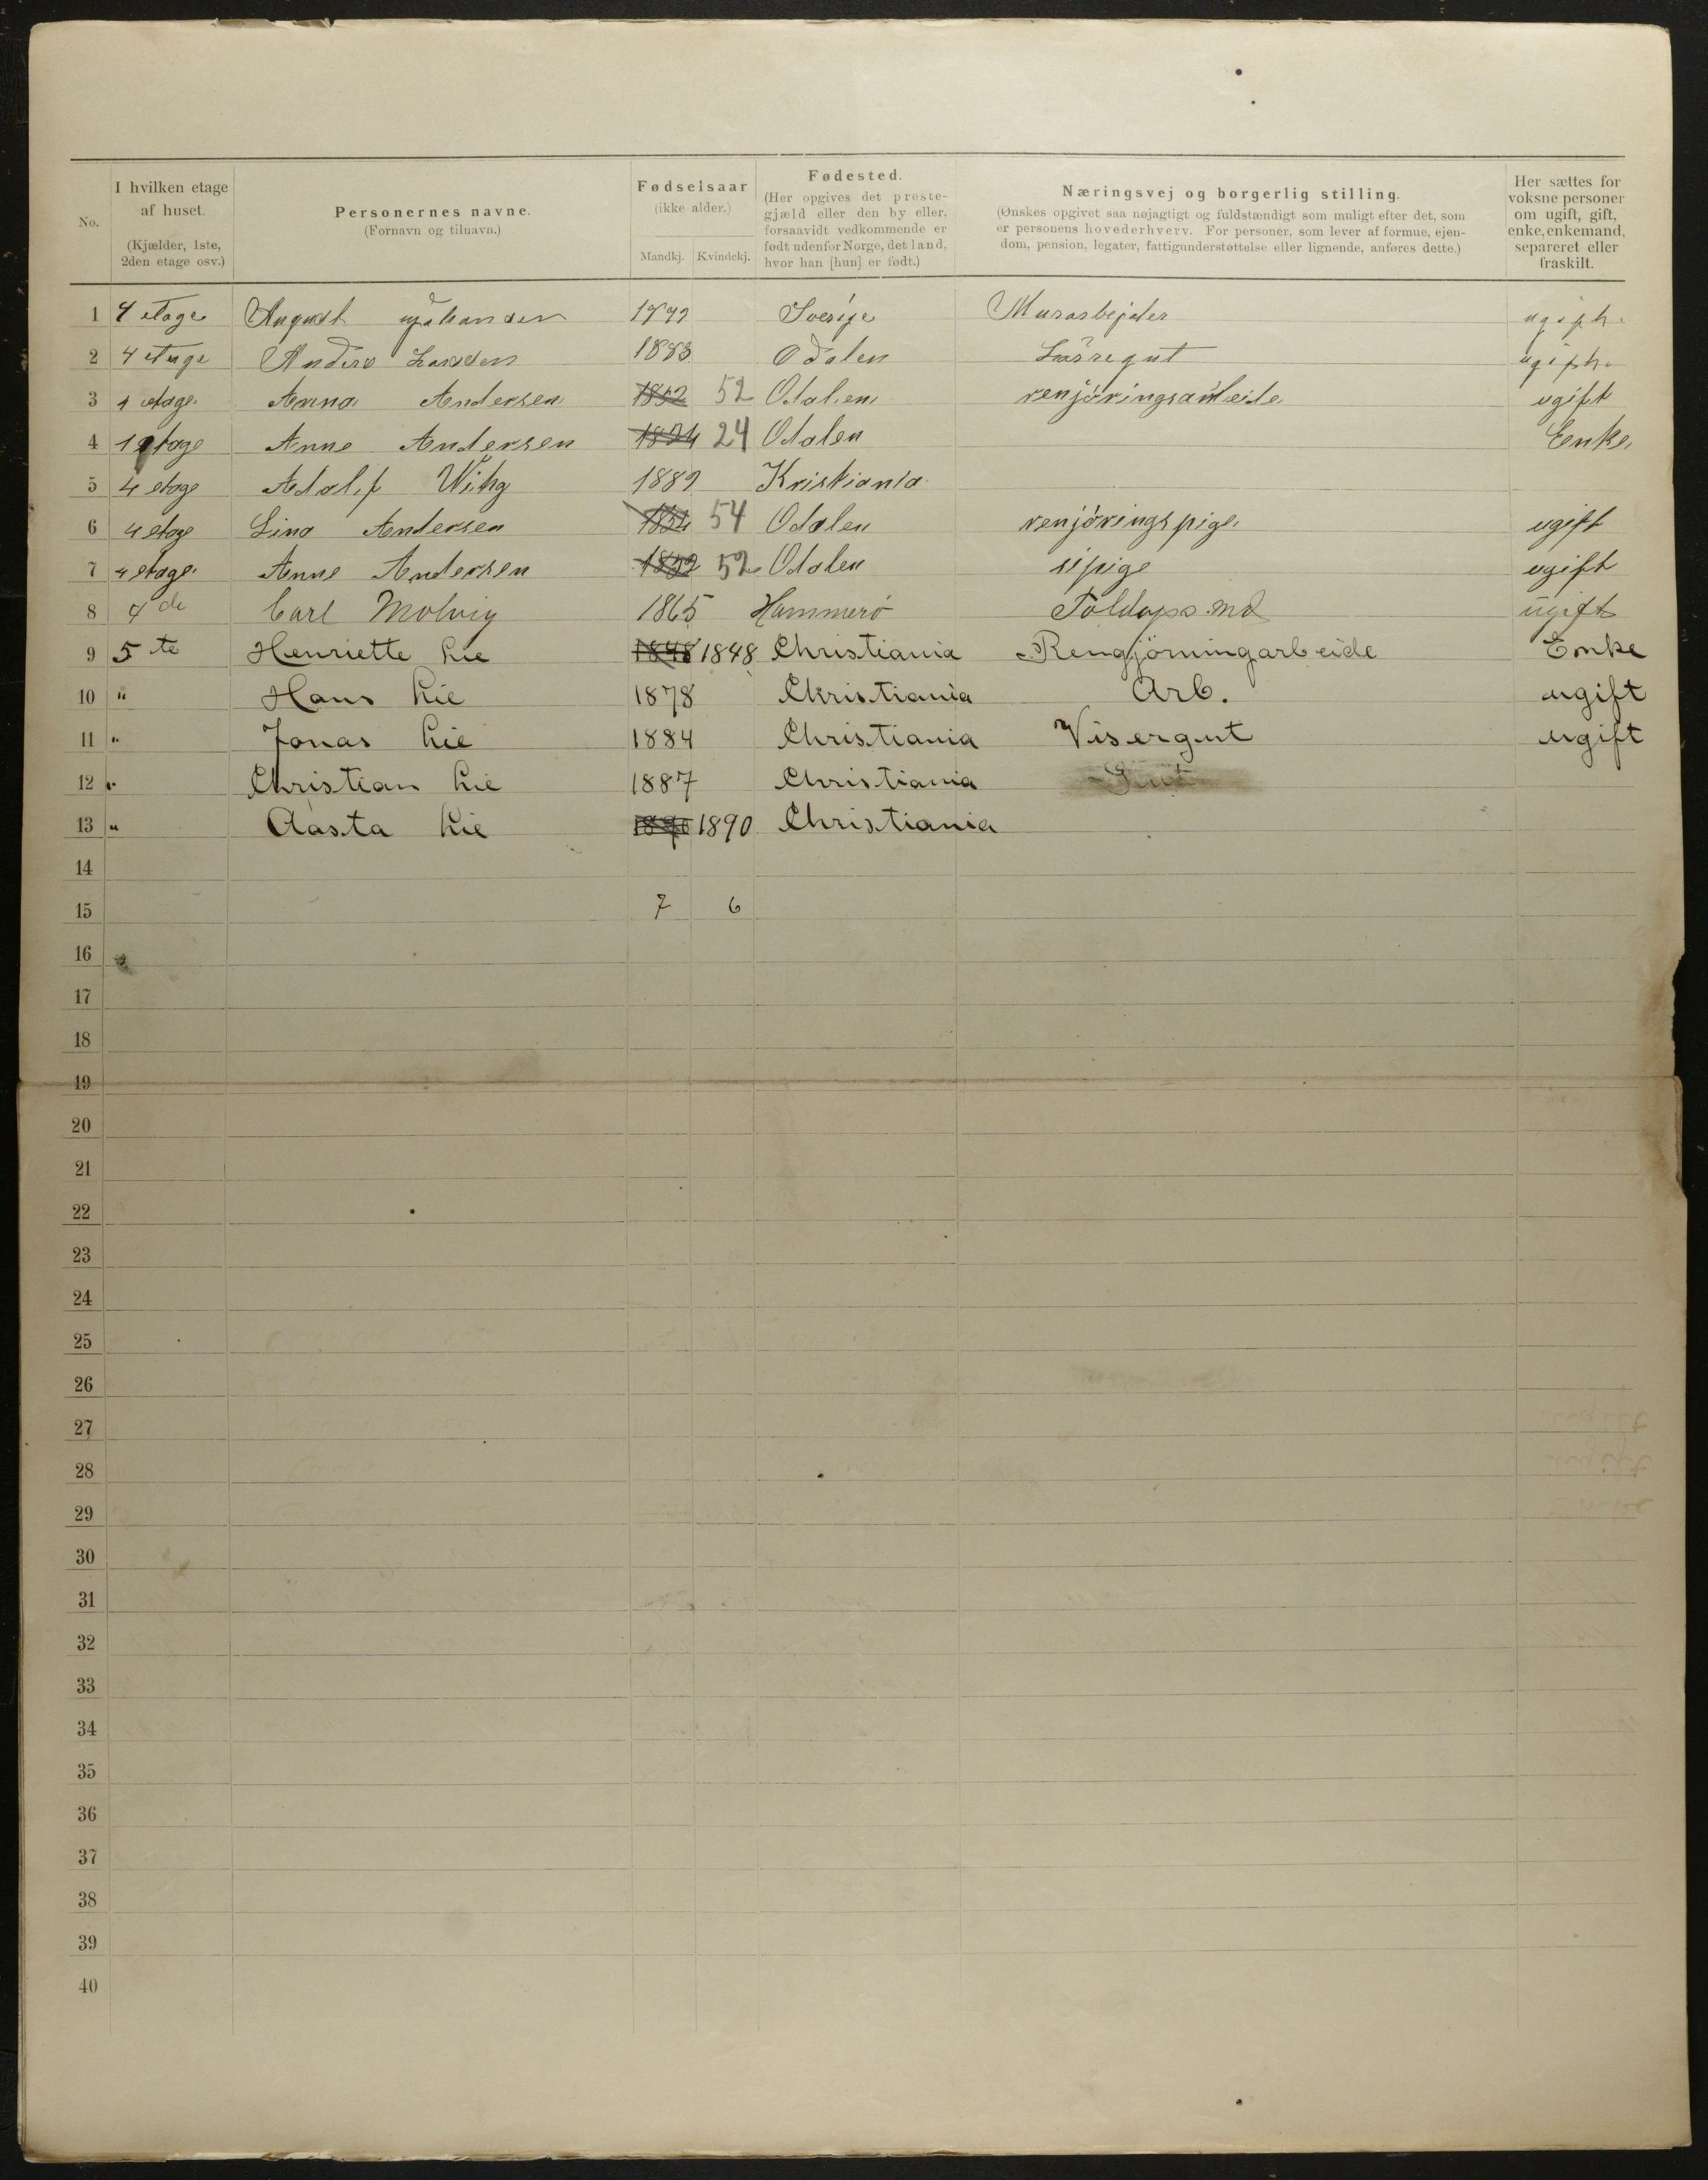 No.
I hvilken etage af huset.
(Kjælder, 1ste, 2den etage osv.)
Personernes navne.
(Fornavn og tilnavn.)
Fødselsaar
(ikke alder.)
Mandkj. Kvindekj.
Fødested.
(Her opgives det prestegjæld eller den by eller, forsaavidt vedkommende er født udenfor Norge, det land, hvor han [hun] er født.)
Næringsvej og borgerlig stilling.
(Ønskes opgivet saa nøjagtigt og fuldstændigt som muligt efter det, som er personens hovederhverv. For personer, som lever af formue, ejendom, pension, legater, fattigunderstøttelse eller lignende, anføres dette.)
Her sættes for voksne personer om ugift, gift, enke, enkemand, separeret eller fraskilt.
1 4 etage August Sverige Murarbejder
2 4 etage Anders 1883 Odalen
3 4 etage Anna Andersen 1852 52 Odalen renjöringsarbeide ugift
4 1 etage Anne Andersen 1824 24 Odalen Enke
5 4 etage Adolf 1889 Kristiania
6 4 etage Lina Andersen 1854 54 Odalen renjöringspige ugift
7 4 etage Anne Andersen 1852 52 Odalen sipige ugift
8 4de Carl Molvig 1865 Hammerö Toldops.md ugift
9 5te Henriette Lie 1848 1848 Christiania Rengjörningarbeide Enke
10 " Hans Lie 1878 Christiania Arb. ugift
11 " Jonas Lie 1884 Christiania Visergut ugift
12 " Christian Lie 1887 Christiania
13 " Aasta Lie 1890 1890 Christiania
14
15 7 6
16
17
18
19
20
21
22
23
24
25
26
27
28
29
30
31
32
33
34
35
36
37
38
39
40